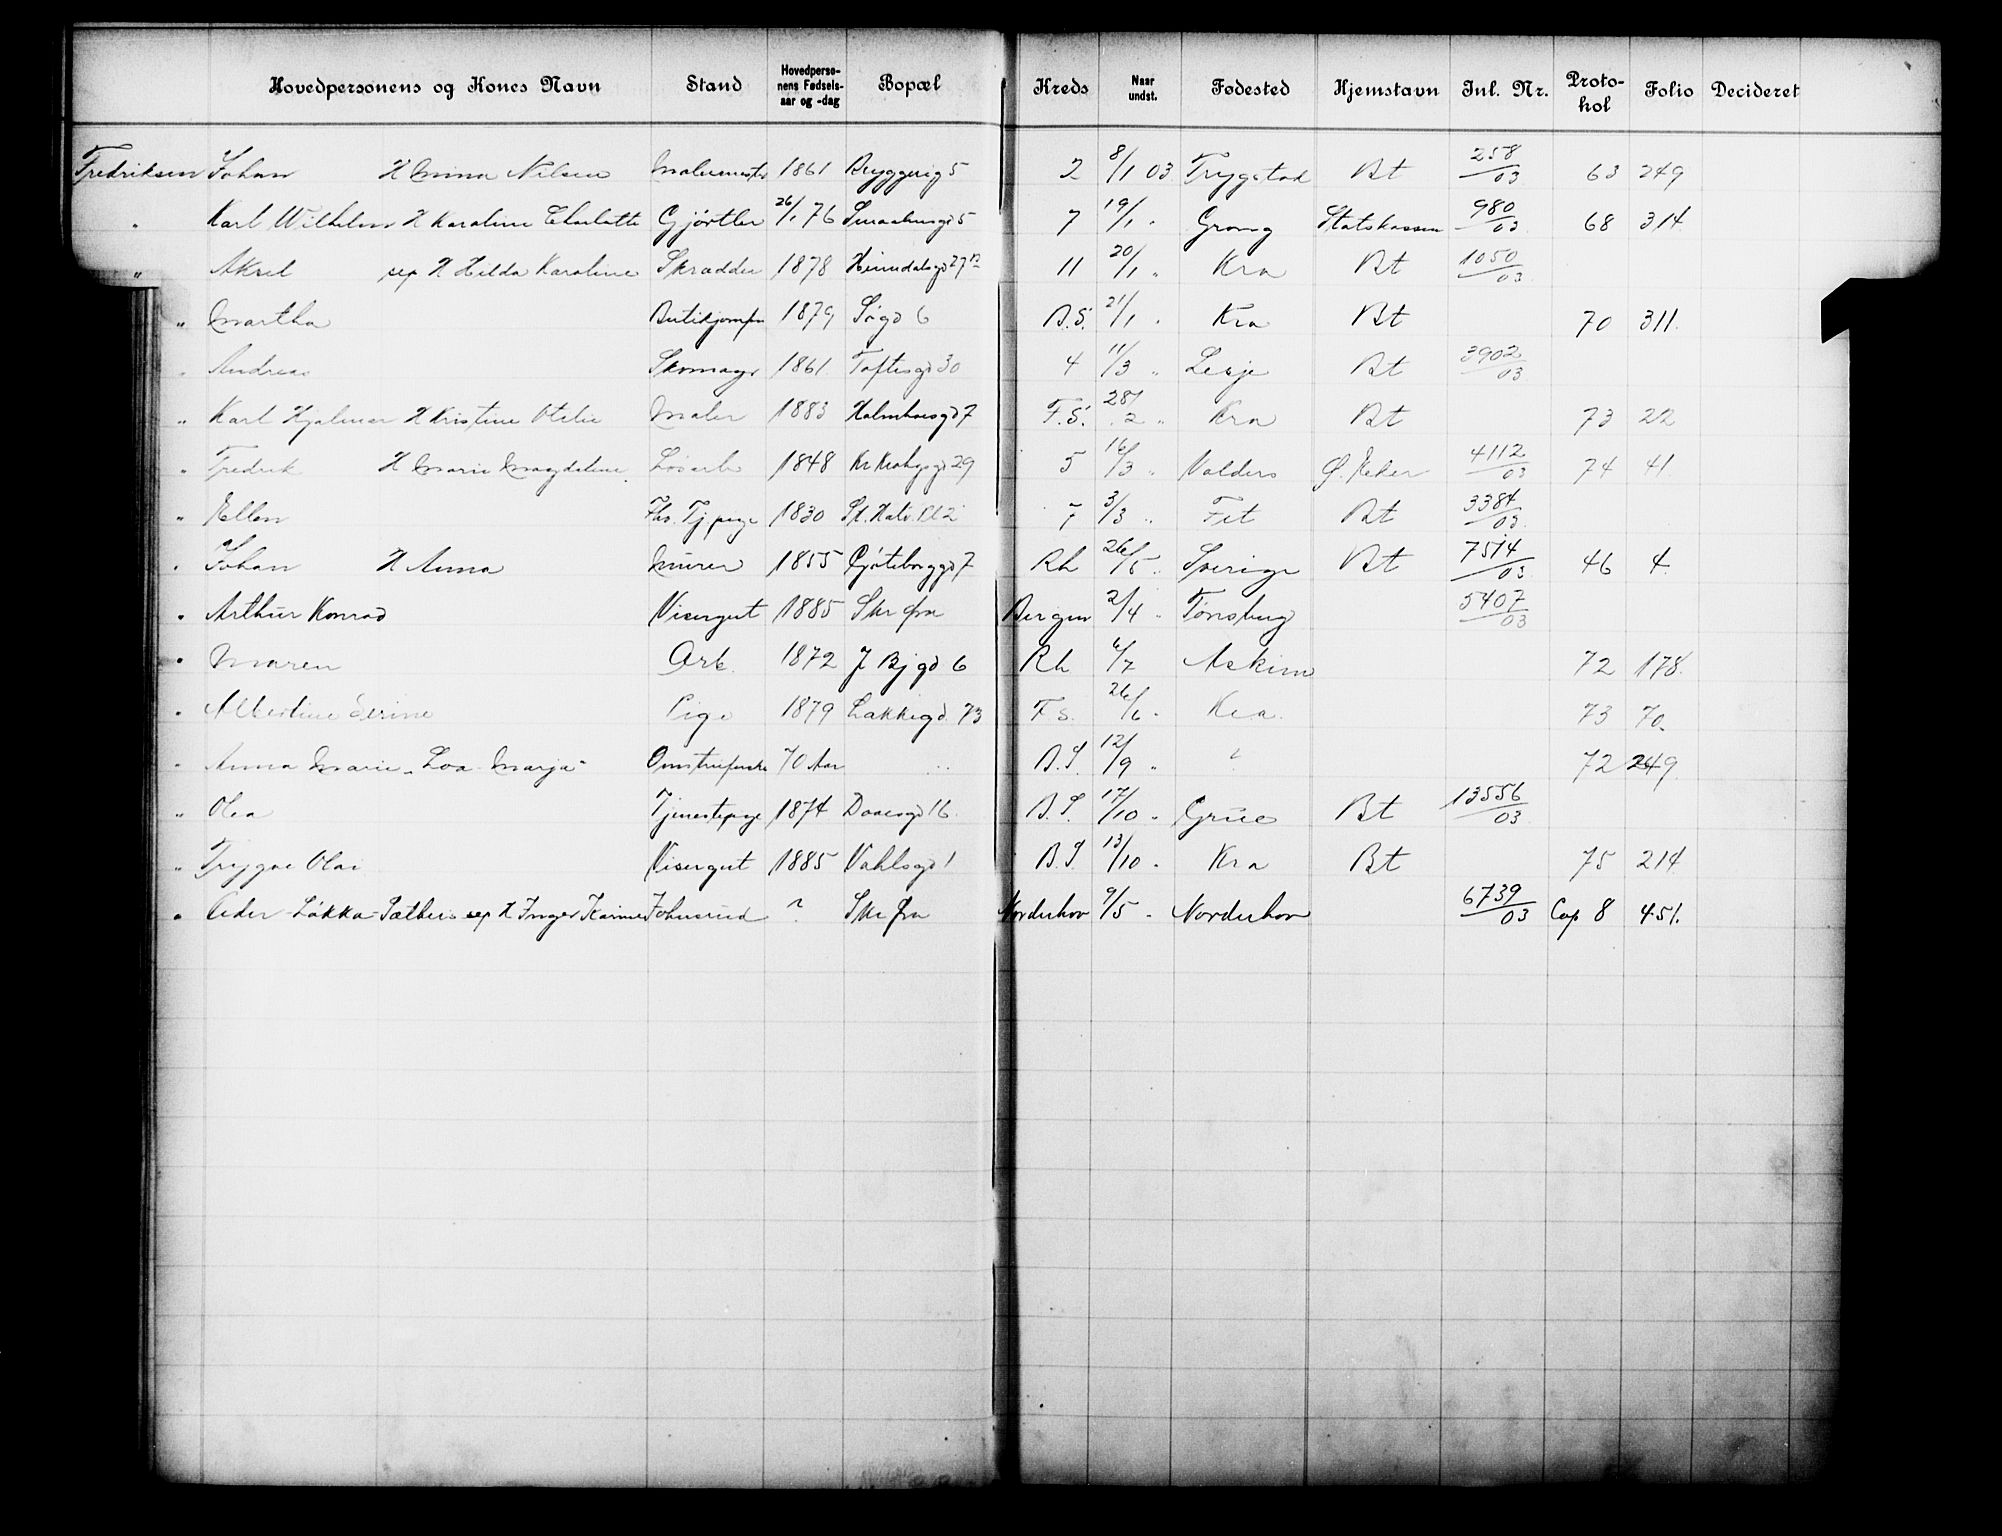 Hovedpersonens og Kones Navn Stand Hovedperso-nens Fødsels-aar og -dag Bopæl Kreds Naar undst. Fødested Hjemstavn Inl. Nr. Proto-kol Folio Decideret
Fredriksen Johan H Anna Nilsen Malermester 1861 Bryggerig 5 2 8/1 03 Trygstad Bt 258/03 63 249
" Karl Wilhelm H Karoline Charlotte Gjørtler 26/1 76 7 19/1 " Grong Statskassen 980/03 68 314
" Aksel sep H Hilda Karoline Skrædder 1878 Heimdalsgd 27 11 20/1 " Kra Bt 1050/03
" Martha Butikjomfr 1879 6 B.S. 21/1 " Kra Bt 70 311.
" Andreas Skomager 1861 Toftesgd 30 4 11/3 " Lesje Bt 3902/03
" Karl Hjalmar H Kristine Otilie Maler 1883 Holmboesgd 7 F.S. 28/2 " Kra Bt 73 22
" Fredrik H Marie Magdalene Løsarb 1848 29 5 16/3 " Valders Ø. Eker 4112/03 74 41
" Ellen 1830 7 3/3 " Fet Bt 3384/03
" Johan H Anna Murer 1855 Gøteborggd 7 Rh 26/5 " Sverige Bt 7514/03 46 4
" Arthur Konrad Visergut 1885 Skr fra Bergen 2/4 " Tønsberg 5407/03
" Maren Arb. 1872 J Bj gd 6 Rh 6/7 Askim 72 178.
" Albertine Serine Pige 1879 Lakkegd. 73 F S. 26/6 " Kra. 73 70.
" Anna Marie "Loa-Marja" Omstreiferske 70 Aar " B.S. 12/9 " ? 72 249
" Olea Tjenestepige 1874 Daaesgd 16 B.S. 17/10 " Grue Bt 13556/03
" Trygve Olai Visergut 1885 Vahlsgd 1 B.S. 13/10 " Kra Bt 75 214
" Peder Løkka-Sæther sep H Inger Karine Johnsrud ? Skr fra Norderhov 9/5 " Norderhov 6739/03 Cop 8 451.